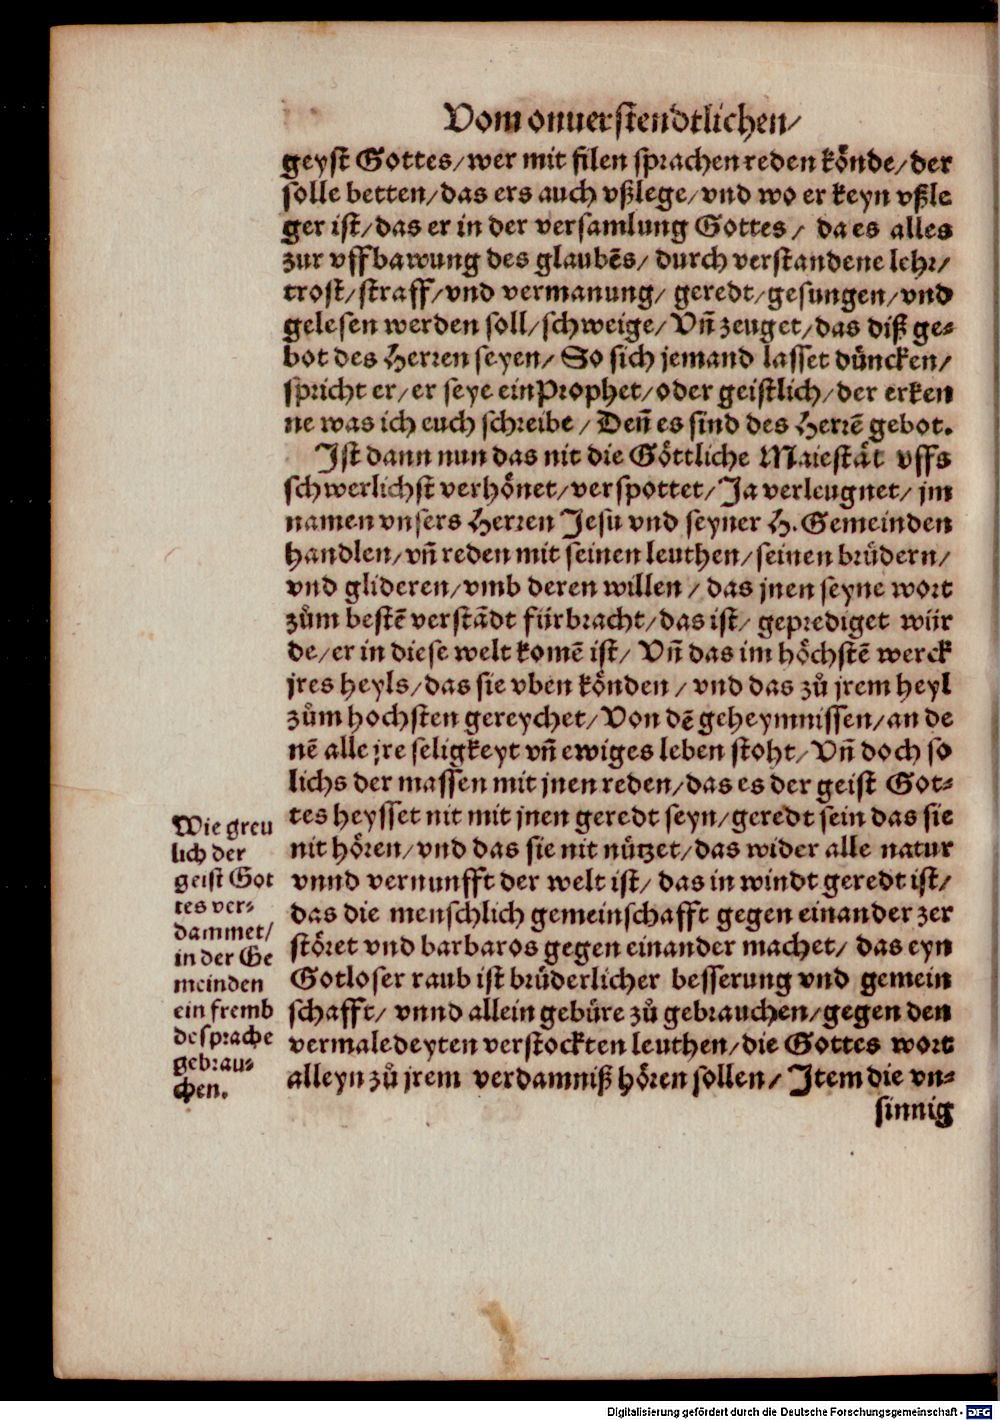 Vom onuerstendtlichen/
geyst Gottes/wer mit filen sprachen reden könde/der
solle betten/das ers auch vßlege/vnd wo er keyn vßle
ger ist/das er in der versamlung Gottes/ da es alles
zur vffbawung des glaubẽs/ durch verstandene lehr/
trost/straff/vnd vermanung/ geredt/gesungen/vnd
gelesen werden soll/schweige/Vñ zeuget/das diß ge-
bot des Herren seyen/ So sich jemand lasset düncken/
spricht er/er seye ein Prophet/oder geistlich/der erken
ne was ich euch schreibe/ Deñ es sind des Herrẽ gebot.
Ist dann nun das nit die Göttliche Maiestät vffs
schwerlichst verhönet/verspottet/Ja verleugnet/ jm
namen vnsers Herren Jesu vnd seyner H. Gemeinden
handlen/vñ reden mit seinen leuthen/seinen brüdern/
vnd glideren/vmb deren willen/ das jnen seyne wort
zům bestẽ verstãdt fürbracht/das ist/ geprediget wür
de/er in diese welt komẽ ist/ Vñ das im höchstẽ werck
jres heyls/das sie vben könden/ vnd das zů jrem heyl
zům hochsten gereychet/Von dẽ geheymnissen/an de
nẽ alle jre seligkeyt vñ ewiges leben stoht/Vñ doch so
lichs der massen mit jnen reden/das es der geist Got-
tes heysset nit mit jnen geredt seyn/geredt sein das sie
nit hören/vnd das sie nit nützet/das wider alle natur
vnnd vernunfft der welt ist/ das in windt geredt ist/
das die menschlich gemeinschafft gegen einander zer
störet vnd barbaros gegen einander machet/ das eyn
Gotloser raub ist brüderlicher besserung vnd gemein
schafft/ vnnd allein gebüre zů gebrauchen/gegen den
vermaledeyten verstockten leuthen/die Gottes wort
alleyn zů jrem verdamniß hören sollen/ Item die vn-
sinnig
Wie greu
lich der
geist Got
tes ver-
dammet/
in der Ge
meinden
ein fremb
de sprache
gebrau-
chen.
Digitalisierung gefördert durch die Deutsche Forschungsgemeinschaft - DFG